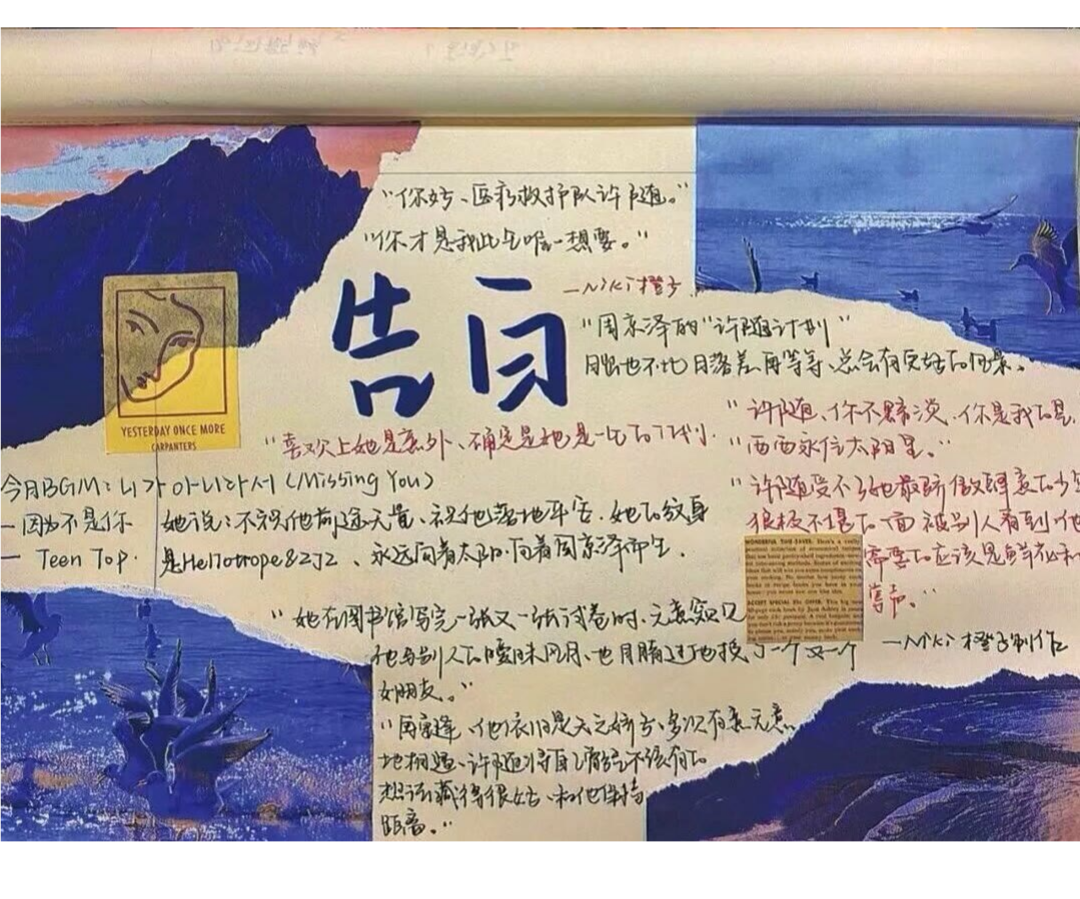 "你好、医疗救护队许随。"
"你才是我此生唯一想要。"
—Niki橙子
告白
"周京泽的"许随计划"
日出也不比日落差、再等等、总会有更好的何景。
YESTERDAY ONCE MORE
CARPANTERS
"喜欢上她是意外、确定是她是一生的计划.
"许随、你不黯淡、你是我的星.
"西西永住太阳星。"
今日BGM：니가 아니라서 (Missing You)
—因为不是你
— Teen Top.
她说：不祝他前途无量、祝他落地平安. 她的纹身
是Heliotrope&ZJZ、永远向着太阳.向着周京泽而生.
"许随受不了她最骄傲肆意的少
狼狈不堪的一面被别人看到他
需要的应该是鲜花和
WONDERFUL TIME-SAVER.
"她在图书馆写完一张又一张试卷时、无意窥见
他与别人的暧昧风月、也目睹过他换了一个又一个
女朋友。"
—Niki橙子制作
"再重逢、他依旧是天之骄子、多次有意无意
地相遇、许随将自己
想法藏得很好、和他保持
距离。"